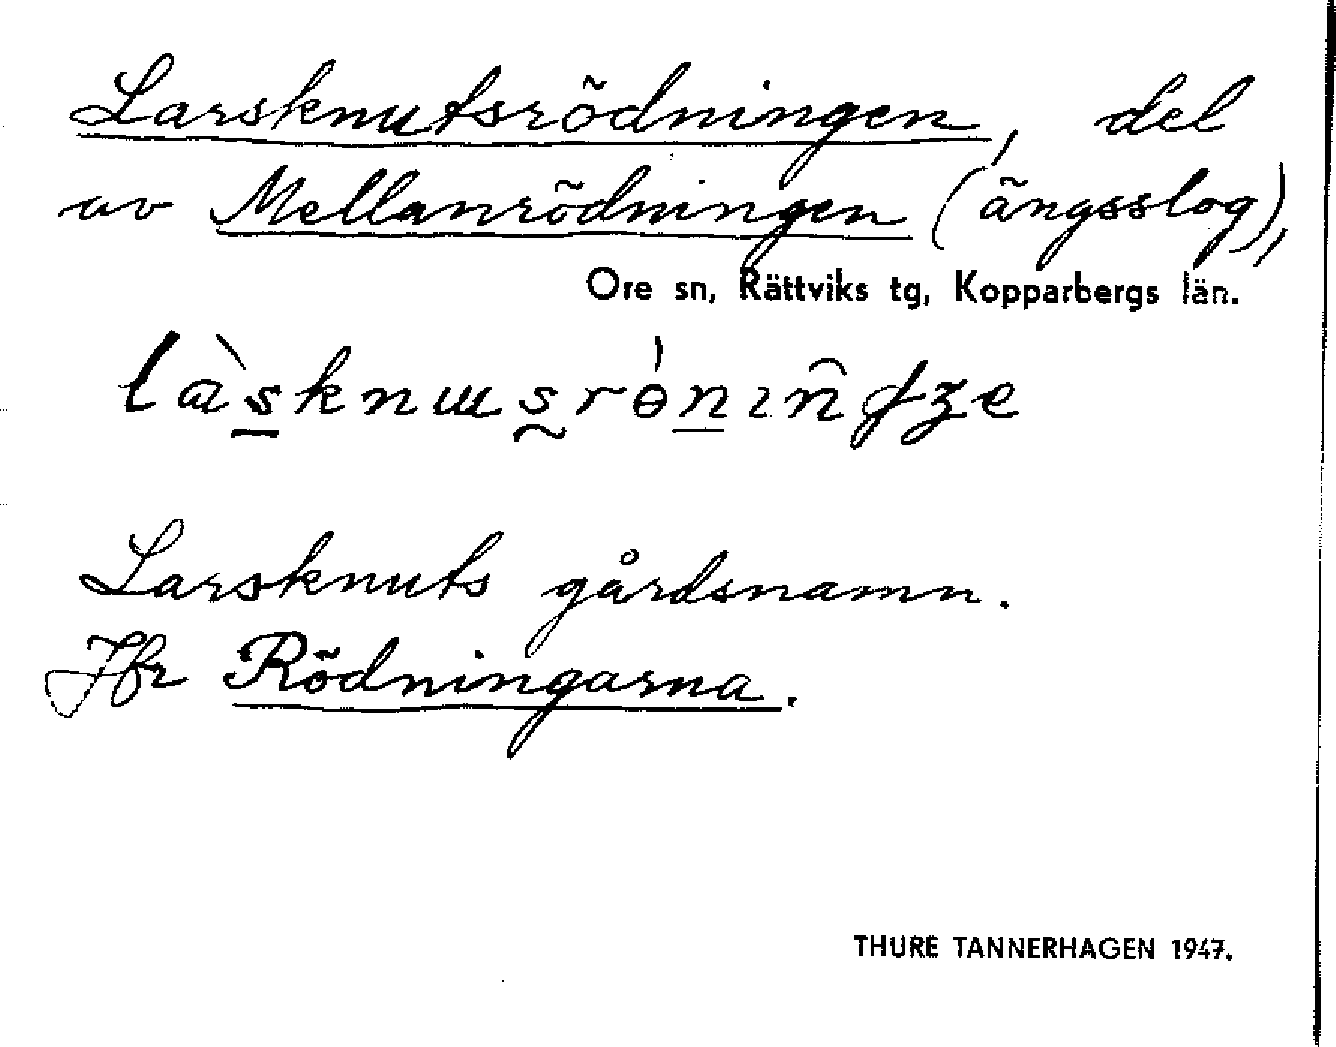 Larsknutsrödningen, del
av Mellanrödningen (ängsslog),
Ore sn, Rättviks tg, Kopparbergs län.
Larsknuts gårdsnamn.
Jfr Rödningarna.
THURE TANNERHAGEN 1947.